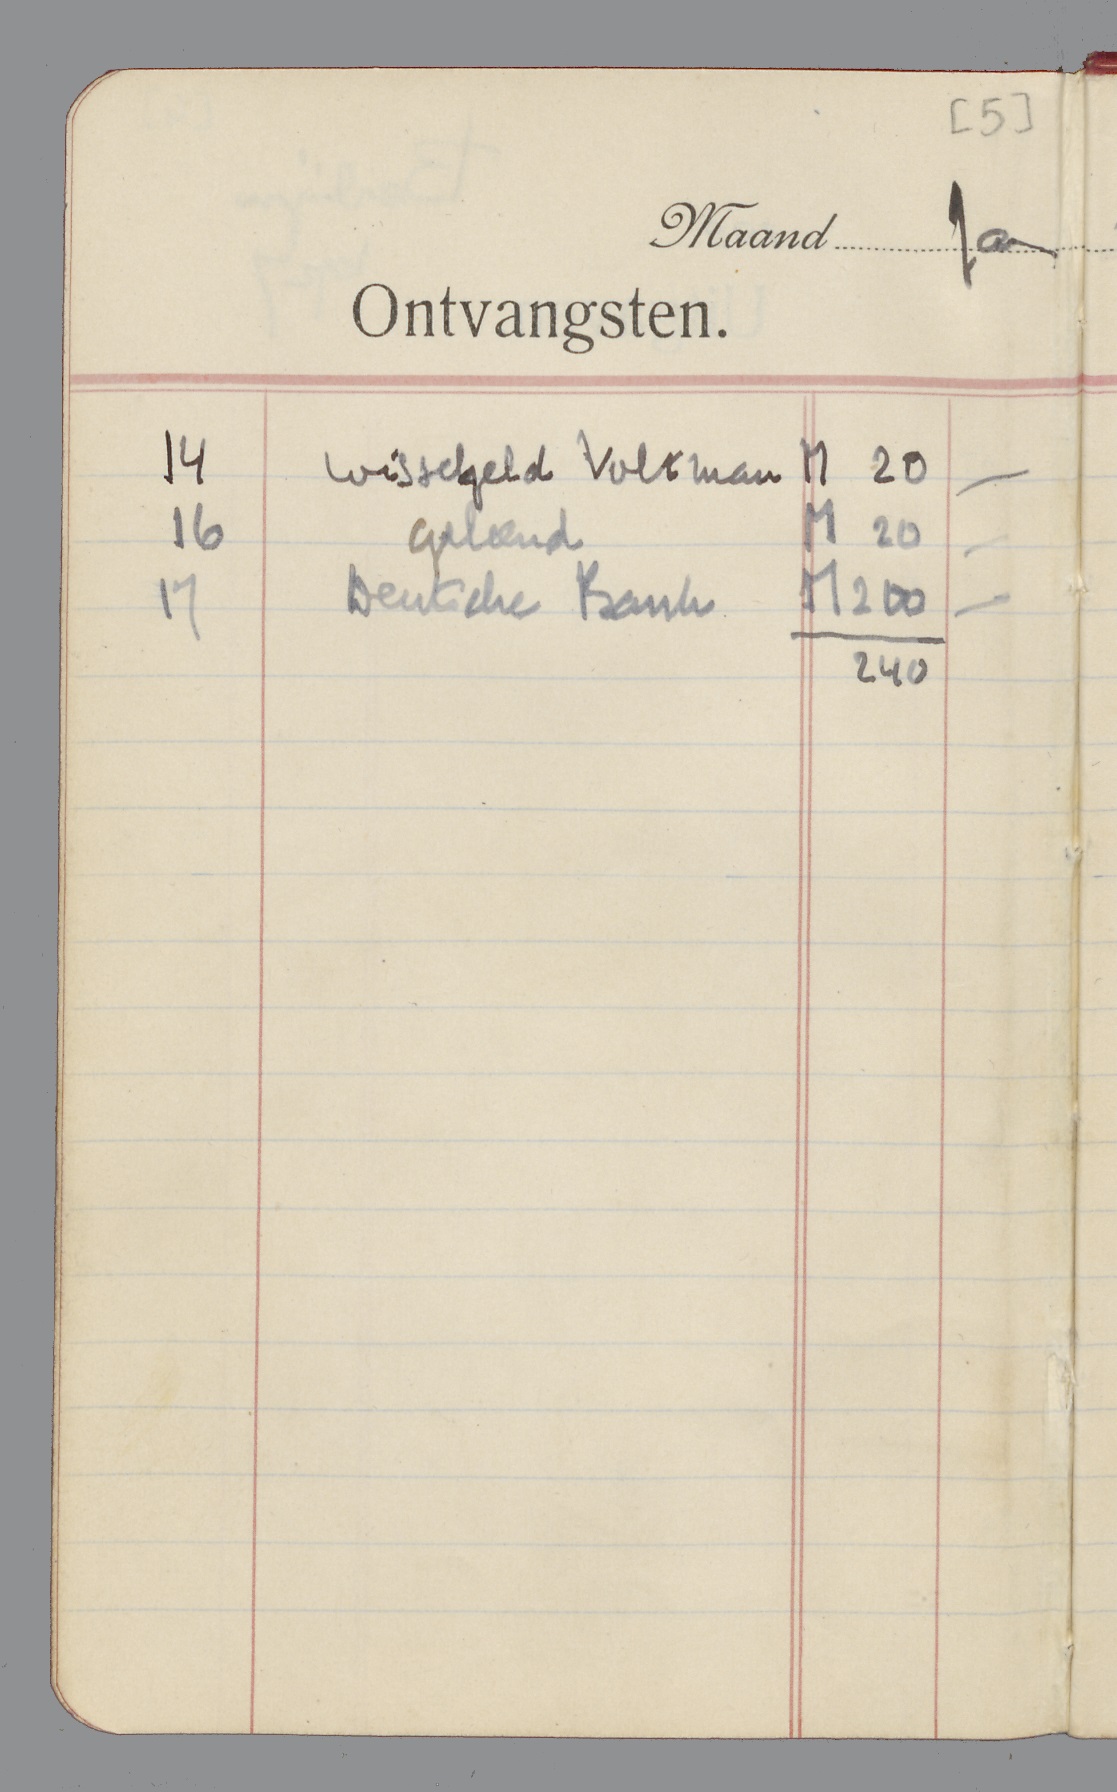 [5]
Maand Jan
Ontvangsten.
14 wisselgeld Volkman M 20 —
16 geleend M 20 —
17 Deutsche Bank M 200 —
240